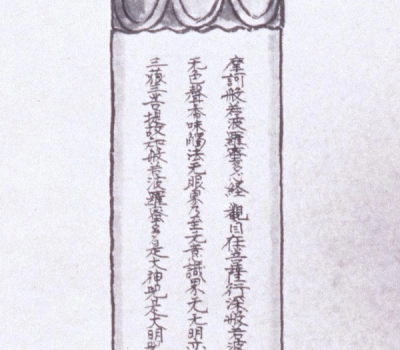 摩訶般若波羅蜜多心経 觀自在菩薩行深般若波
无色聲香味觸法无眼界乃至无意識界无无明亦
三藐三菩提故知般若波羅蜜多是大神呪是大明